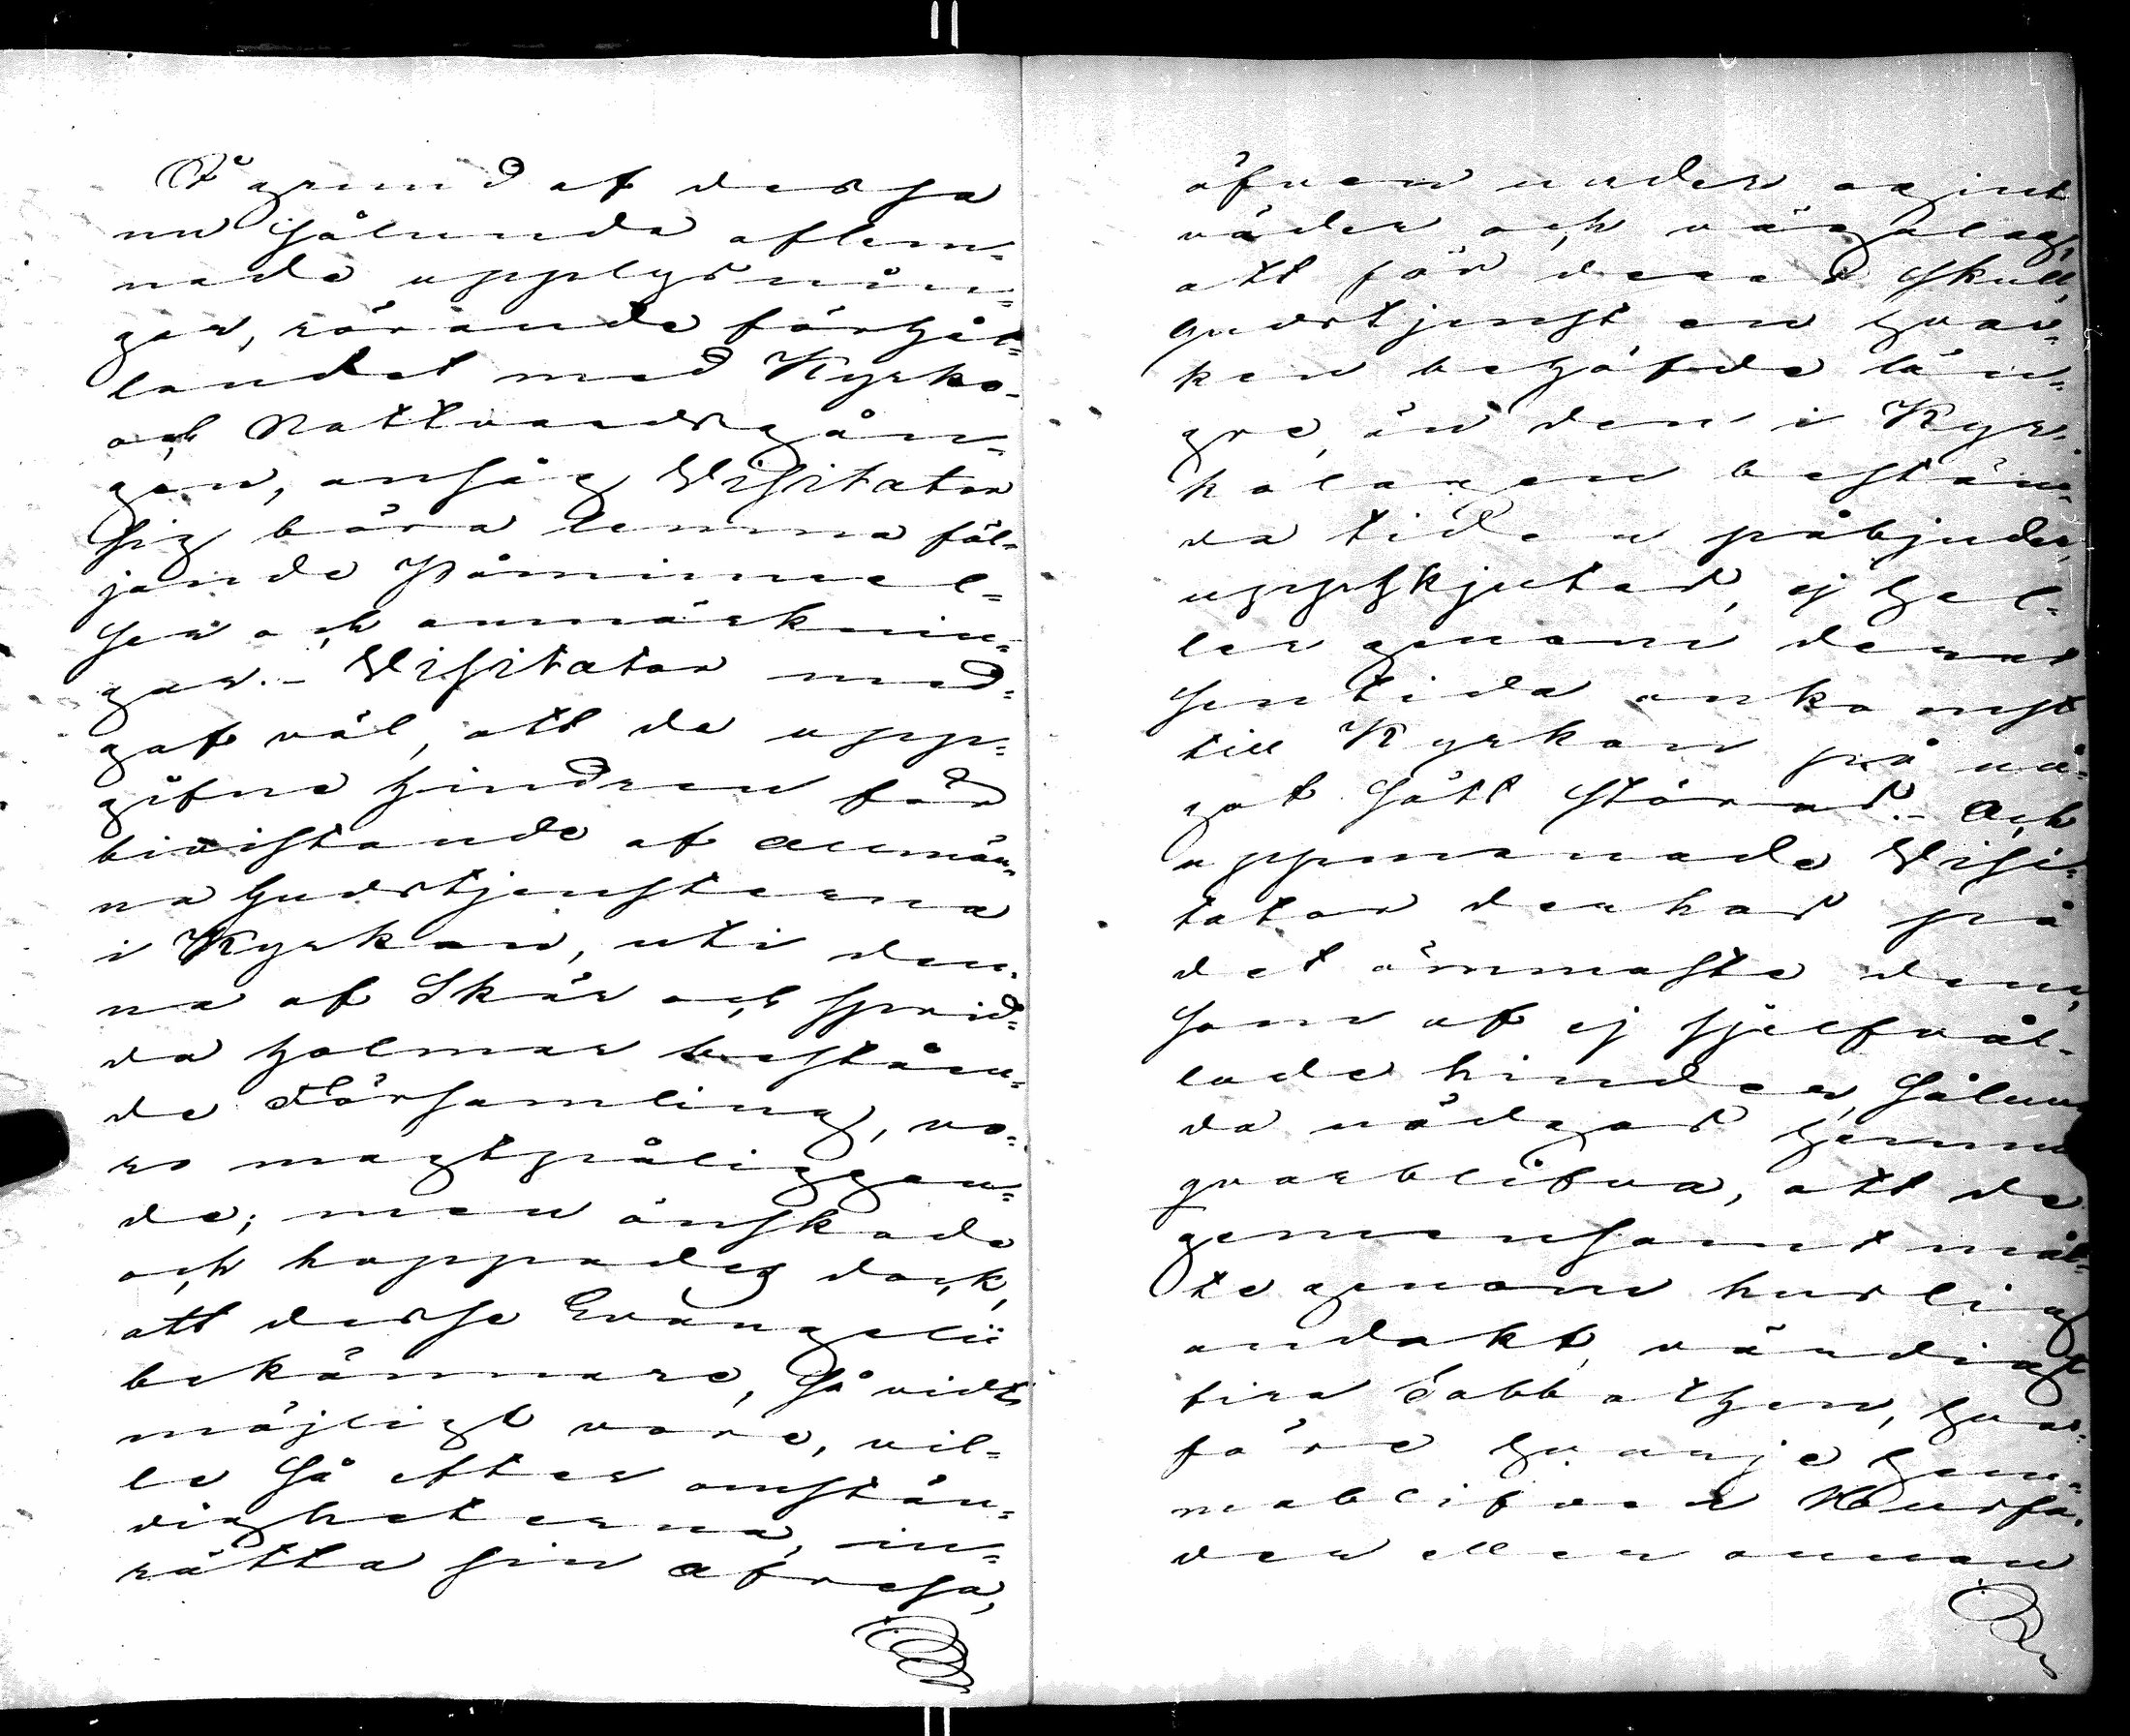 På grund af dessa
nu sålunda aflem=
nade upplysnin=
gar, rörande förhål=
landet med Kyrko-
och Nattvardsgån=
gen, ansåg Visitator
sig böra lemna föl=
jande påminnel=
ser och anmärknin=
gar. - Visitator med=
gaf väl, att de upp=
gifne hindren för
bivistande af allmän=
na Gudstjensterna
i Kyrkan, uti den=
na af Skär och sprid=
da holmar bestäen=
de Församling, vo=
ro magtpåliggan=
de; men önskade
och hoppades dock,
att desse Evangelii
bekännare, så vidt
möjligt vore, vil=
le så efter omstän=
digheterna, in=
rätta sin afresa,
äfven under ogint
väder och väglag,
att för deras skull,
gudstjensten hvar=
ken behöfde län=
gre, än den i Kyr=
kolagen bestäm=
da tiden påbjuder,
uppskjutas, ej hel=
ler genom deras
sentida ankomst
till Kyrkan på nå=
got sätt störas. - Och
uppmanade Visi=
tator derhos på
det ömmaste dem,
som af ej sjelfvål=
lade hinder, sålun
da nödgas hemma
qvarblifva, att de
gemensamt mål=
te genom huslig
andakt, värdigt
fira Sabbathen, hvar=
före hvarje hem=
mablifven Husfa=
der eller annan